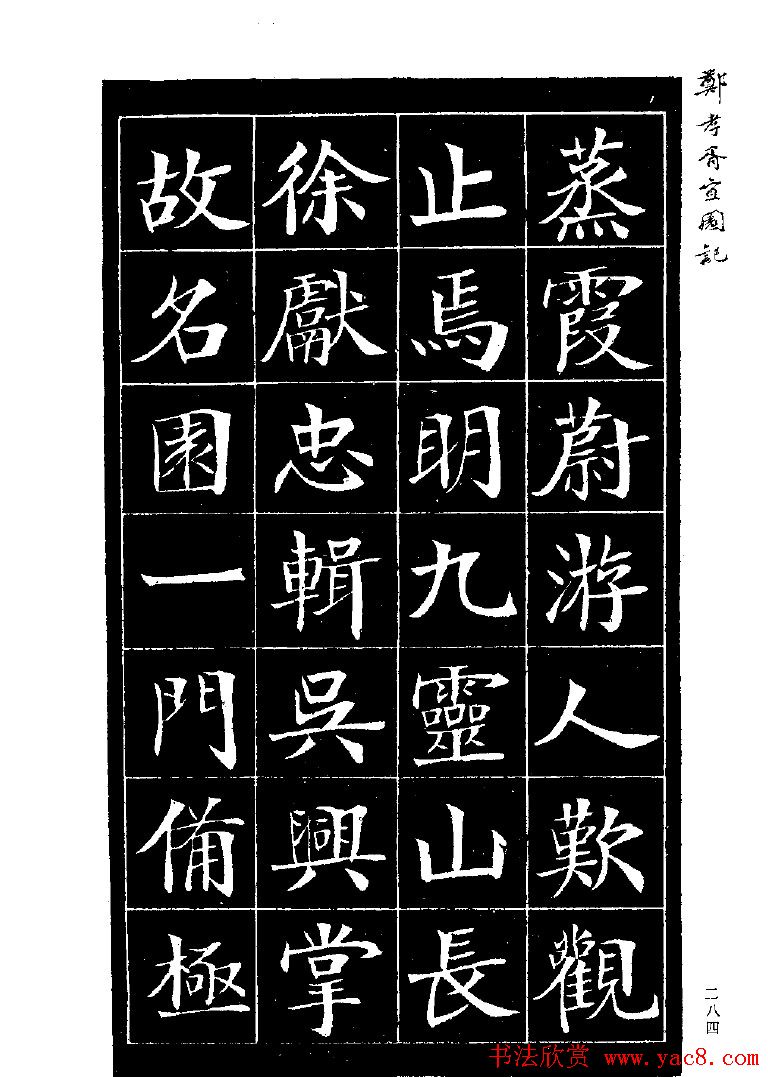 鄭孝胥壺園記
蒸霞蔚游人歎觀
止焉明九靈山長
徐獻忠輯吳興掌
故名園一門備極
二八四
书法欣赏 www.yac8.com